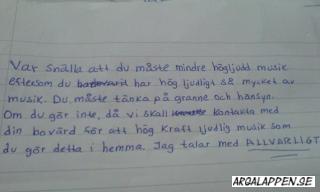 Var snälla att du måste mindre högljudd musik
eftersom du har hög ljudligt så mycket av
musik. Du måste tänka på granne och hänsyn.
Om du gör inte, då vi skall kontakta med
din bovärd för att hög kraft ljudlig musik som
du gör detta i hemma. Jag talar med ALLVARLIGT
ARGALAPPEN.SE